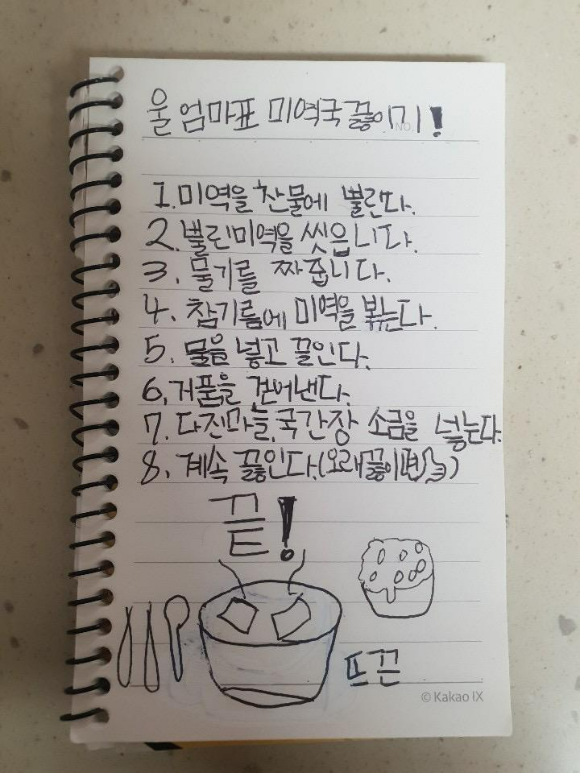 울 엄마표 미역국 끓이기!
1. 미역을 찬물에 뿔린다.
2. 뿔린미역을 씻읍니다.
3. 물기를 짜줍니다.
4. 참기름에 미역을 볶는다.
5. 물을 넣고 끌인다.
6. 거품을 걷어낸다.
7. 다진마늘, 국간장 소금을 넣는다.
8. 계속 끓인다. (오래끓이면 )
끝!
뜨끈
© Kakao IX